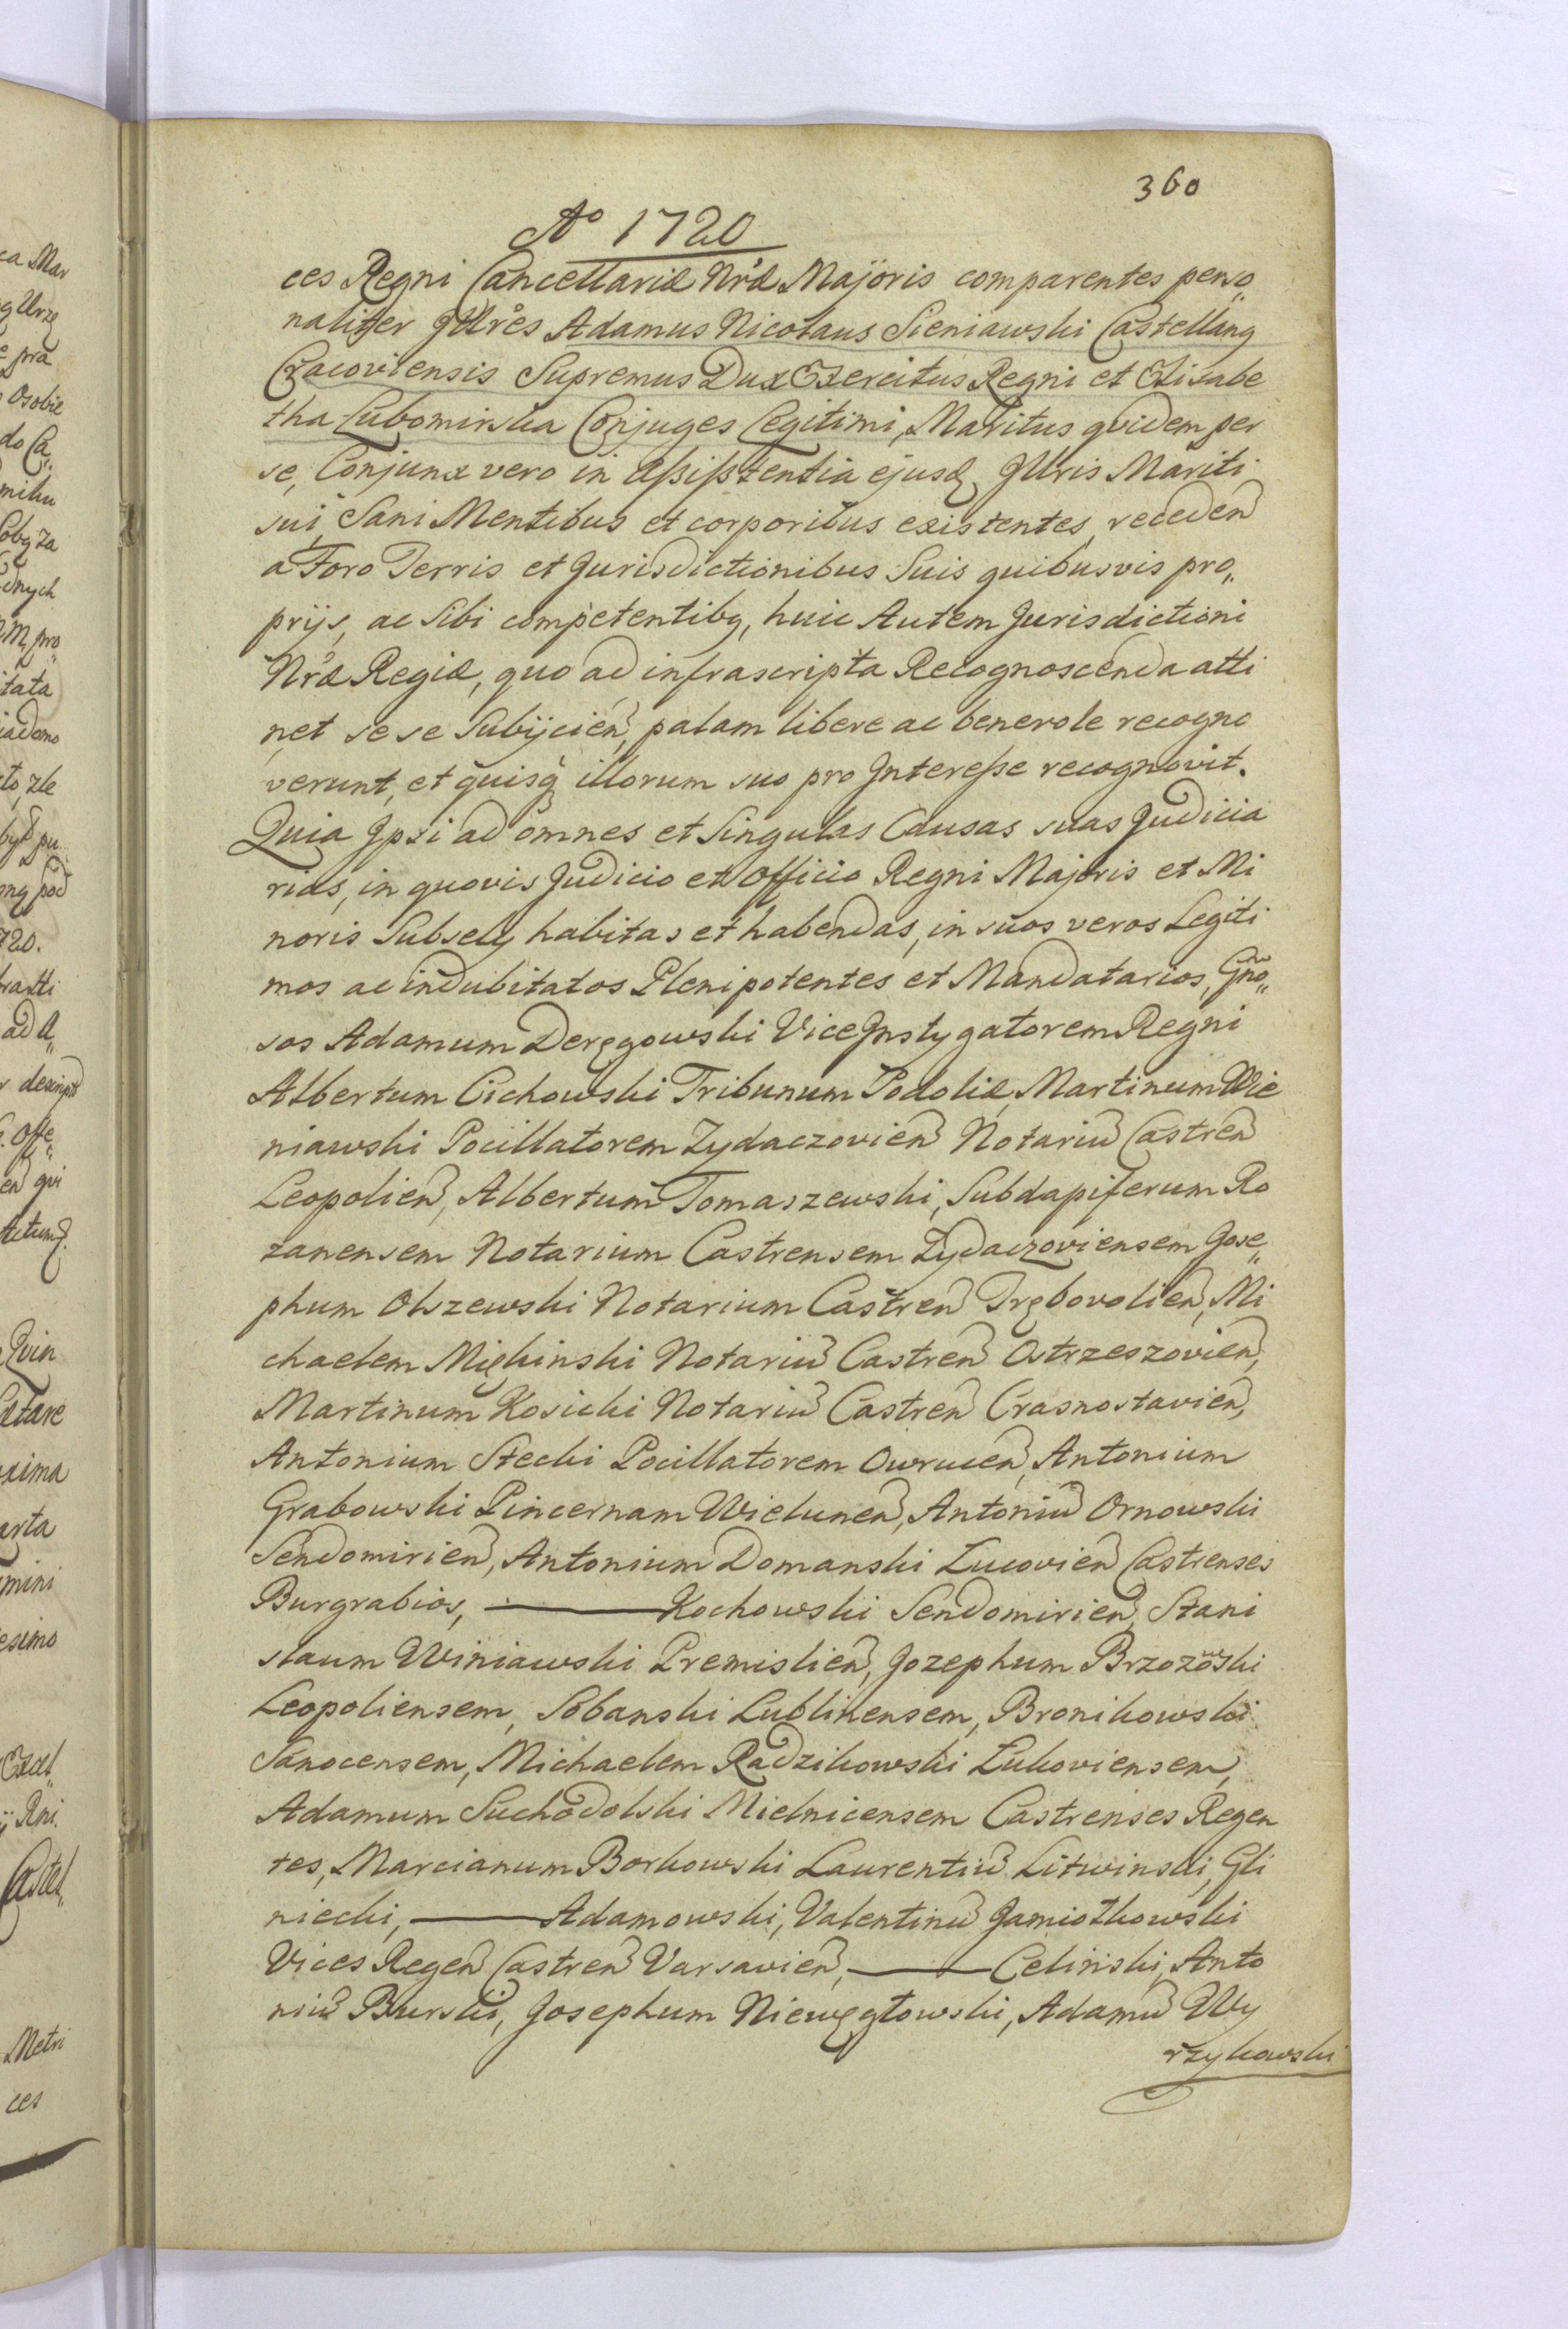 360
Aº 1720
ces Regni Cancellariæ Nræ Majoris comparentes perso„
naliter Illres Adamus Nicolaus Sieniawski Castellang
Cracoviensis Supremus Dux Exercitus Regni et Elisabe
tha Lubomirska Conjuges Legitimi, Maritus qvidem per
se, Conjunx vero in Assisstentia ejusd, Illris Mariti
sui, Sani Mentibus et corporibus existentes, receden
a Foro Terris et Jurisdictionibus Suis quibusvis pro„
prijs, ac Sibi competentibg, huic Autem Jurisdictioni
Nræ Regiæ, quo ad infrascripta Recognoscenda atti
net se se Subijcien, palam libere ac benevole recogno
verunt, et quisq illorum suo pro Interesse recognovit.
Quia Ipsi ad omnes et Singulas Causas suas Judicia
rias, in quovis Judicio et Officio Regni Majoris et Mi
noris Subselÿ habitas et habendas, in suos veros Legiti
mos ac indubitatos Plenipotentes et Mandatarios, Gno„
sos Adamum Deręgowski ViceInstygatorem Regni
Albertum Cichowski Tribunum Podoliæ, Martinum Wie
niawski Pocillatorem Zydaczovien Notariu Castren
Leopolien, Albertum Tomaszewski, Subdapiferum Ro
zanensem Notarium Castrensem Zydaczoviensem Jose„
phum Olszewski Notarium Castren Trębovolien, Mi
chaelem Miękinski Notariu Castren Ostrzeszovien,
Martinum Kosicki Notariu Castren Crasnostavien,
Antonium Stecki Pocillatorem Owrucen, Antonium
Grabowski Pincernam Wielunen, Antoniu Ornowski
Sendomirien, Antonium Domanski Lucovien Castrenses
Burgrabios, ——— Kochowski Sendomirien, Stani
slaum Winiawski Premislien, Jozephum Brzozowski
Leopoliensem, Sobanski Lublinensem, Bronikowski
Sanocensem, Michaelem Radzikowski Lukoviensem,
Adamum Suchodolski Mielnicensem Castrenses Regen
tes, Marcianum Borkowski Laurentiu Litwinski, Gli
niecki, ——— Adamowski, Valentinu Jamiołkowski
Vices Regen Castren Varsavien, ——— Celinski, Anto
niu Burski, Josephum Niewęgłowski, Adamu Wy
rzykowski